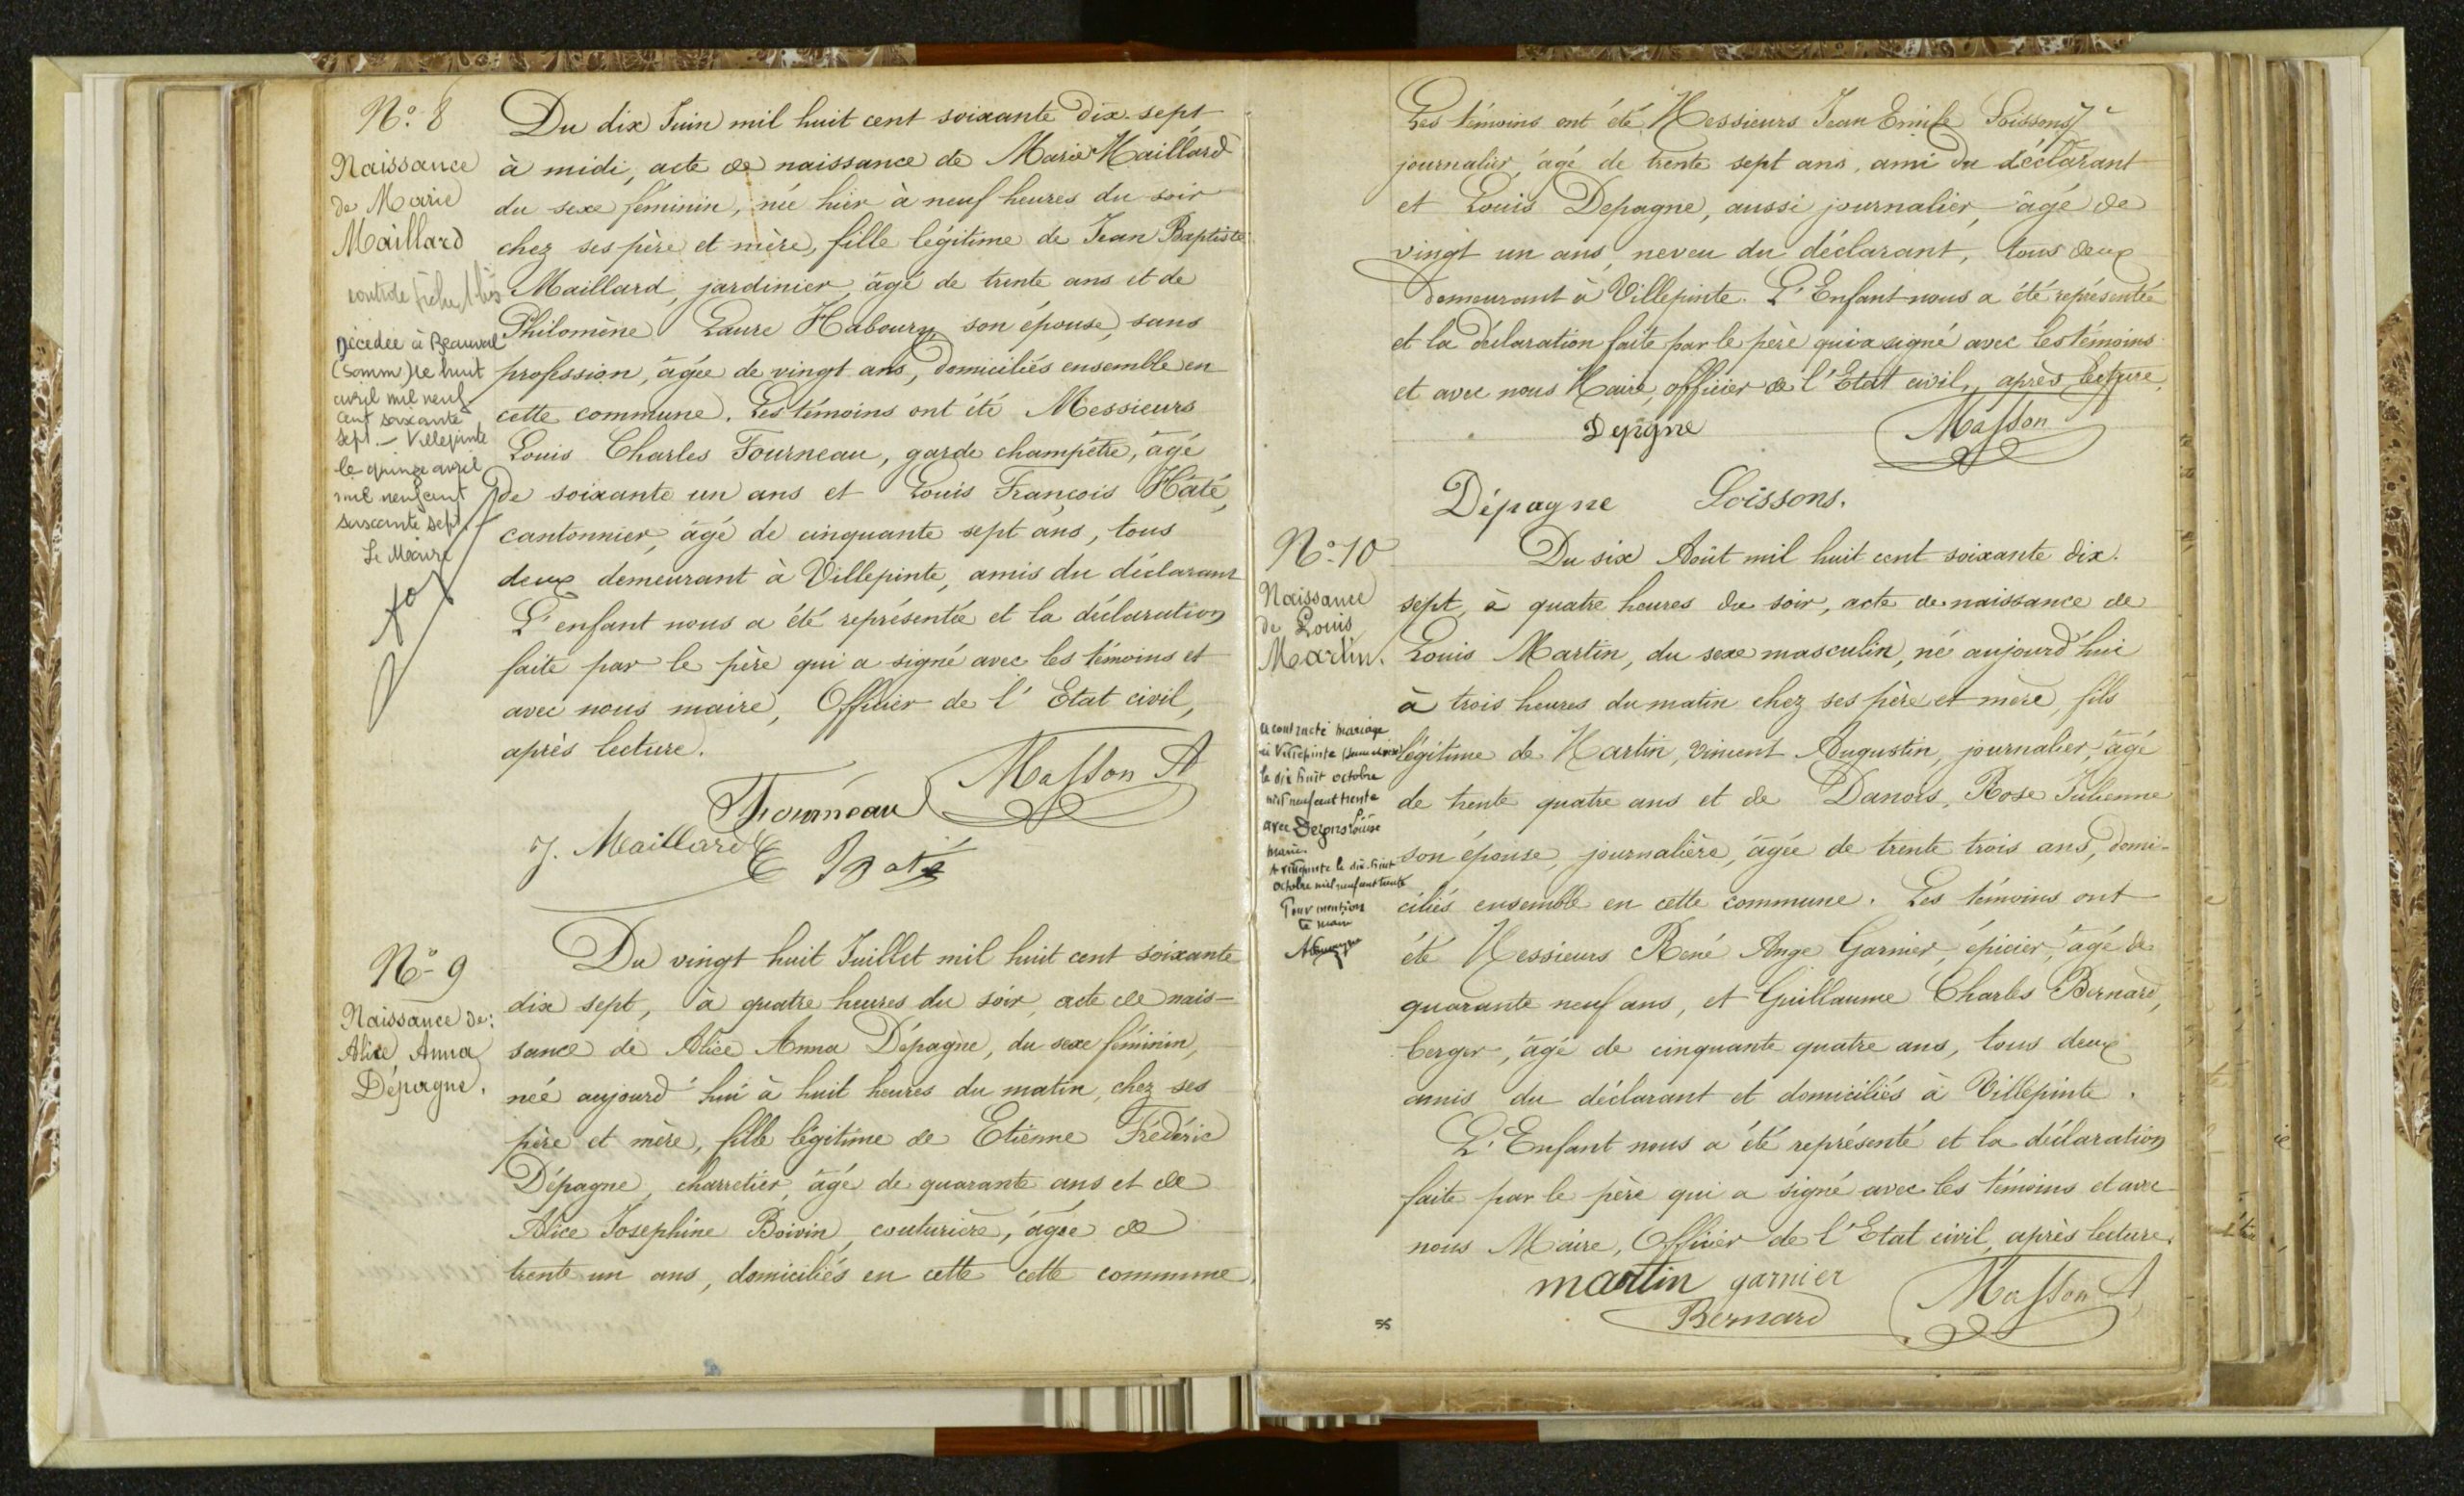 N° 8
Naissance
de Marie
Maillard
Décédée à Beauval
(Somm) le huit
avril mil neuf
cent soixante
sept. – Villepinte
le quinze avril
mil neuf cent
soixante sept.
Le Maire
Du dix Juin mil huit cent soixante dix-sept
à midi, acte de naissance de Marie Maillard
du sexe féminin, née hier à neuf heures du soir
chez ses père et mère, fille légitime de Jean Baptiste
Maillard, jardinier, âgé de trente ans et de
Philomène Laure Haboury son épouse, sans
profession, âgée de vingt ans, domiciliés ensemble en
cette commune. Les témoins ont été Messieurs
Louis Charles Fourneau, garde champêtre, âgé
de soixante un ans et Louis François Hâté,
cantonnier, âgé de cinquante sept ans, tous
deux demeurant à Villepinte, amis du déclarant
L'enfant nous a été représentée et la déclaration
faite par le père qui a signé avec les témoins et
avec nous maire, Officier de l'Etat civil,
après lecture.
Fourneau Masson A
J. Maillard
N° 9
Naissance de:
Alice Anna
Dépagne.
Du vingt huit Juillet mil huit cent soixante
dix sept, à quatre heures du soir, acte de nais-
sance de Alice Anna Dépagne, du sexe féminin,
née aujourd'hui à huit heures du matin, chez ses
père et mère, fille légitime de Etienne Frédéric
Dépagne, charretier, âgé de quarante ans et de
Alice Josephine Boivin, couturière, âgée de
trente un ans, domiciliés en cette cette commune.
Les témoins ont été Messieurs Jean Emile Soissons,
journalier, âgé de trente sept ans, ami du déclarant
et Louis Depagne, aussi journalier, âgé de
vingt un ans, neveu du déclarant, tous deux
demeurant à Villepinte. L'Enfant nous a été représentée
et la déclaration faite par le père qui a signé avec les témoins
et avec nous Maire, officier de l'Etat civil, après lecture.
Masson A
Dépagne Soissons.
N° 10
Naissance
de Louis
Martin.
a contracté mariage
à Villepinte
le dix huit octobre
mil neuf cent trente
avec Louise
Marie.
A Villepinte le dix-huit
octobre mil neuf cent trente
Pour mention
Le maire
Du six Août mil huit cent soixante dix.
sept, à quatre heures du soir, acte de naissance de
Louis Martin, du sexe masculin, né aujourd'hui
à trois heures du matin chez ses père et mère, fils
légitime de Martin, Vincent Augustin, journalier, âgé
de trente quatre ans et de Danois, Rose Julienne
son épouse, journalière, âgée de trente trois ans, domi-
ciliés ensemble en cette commune. Les témoins ont
été Messieurs René Ange Garnier, épicier, âgé de
quarante neuf ans, et Guillaume Charles Bernard,
berger, âgé de cinquante quatre ans, tous deux
amis du déclarant et domiciliés à Villepinte.
L'Enfant nous a été représenté et la déclaration
faite par le père qui a signé avec les témoins et avec
nous Maire, Officier de l'Etat civil, après lecture.
martin garnier
Bernard Masson A
55